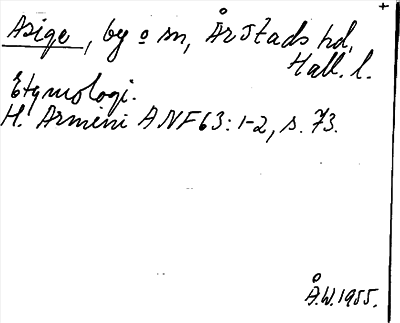 Asige, by o sn, Årstads hd,
Hall. l.
Etymologi.
H. Armini ANF 63: 1-2, s. 73.
Å.W. 1955.